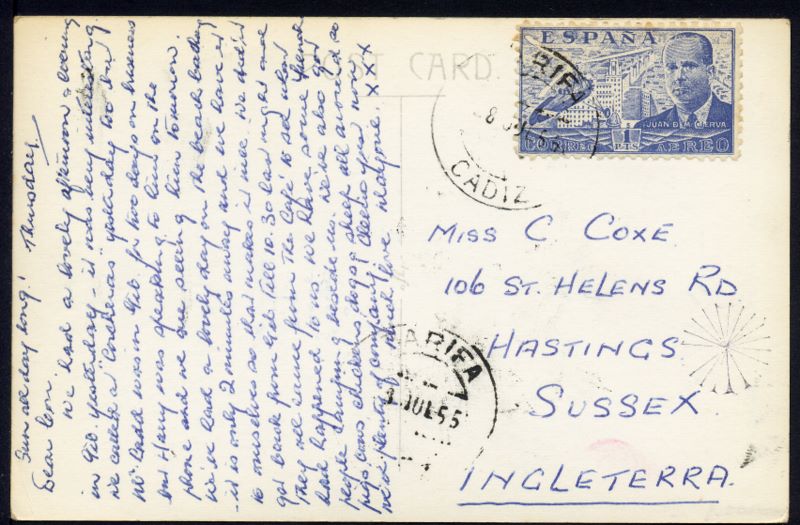 Sun all day long! Thursday
Dear Con.
We had a lovely afternoon & evening
in Gib. yesterday - it was very interesting.
we called a "Contreras" yesterday too but
Mr Cadd was in Gib. for two days on business
but Harry was speaking to him on the
phone and we are seeing him tomorrow.
We've had a lovely day on the beach today
- it is only 2 minutes away and we have it
to ourselves so that makes it nice. We didn't
got back from Gib till 10.30 last night and
they all came from the Café to see what
had happened to us. We have some
people camping beside us. We've also got
pigs cows chickens dogs & sheep all around us
so plenty of company! Cheerio for now
much love Madgerie. XXX
POST CARD
ESPAÑA
JUAN DE LA CIERVA
CORREO 1 PTS AEREO
TARIFA
8 JUL 55
CADIZ
MISS C. COXE
106 ST. HELENS RD
HASTINGS
SUSSEX.
INGLETERRA.
TARIFA
JUL 55